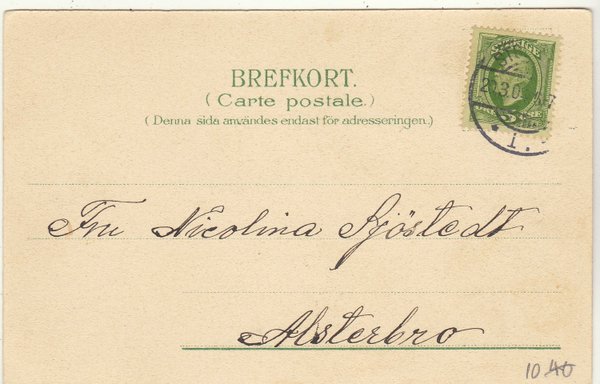 BREFKORT.
( Carte postale. )
( Denna sida användes endast för adresseringen. )
SVERIGE
Fru Nicolina Sjöstedt
Alsterbro
10